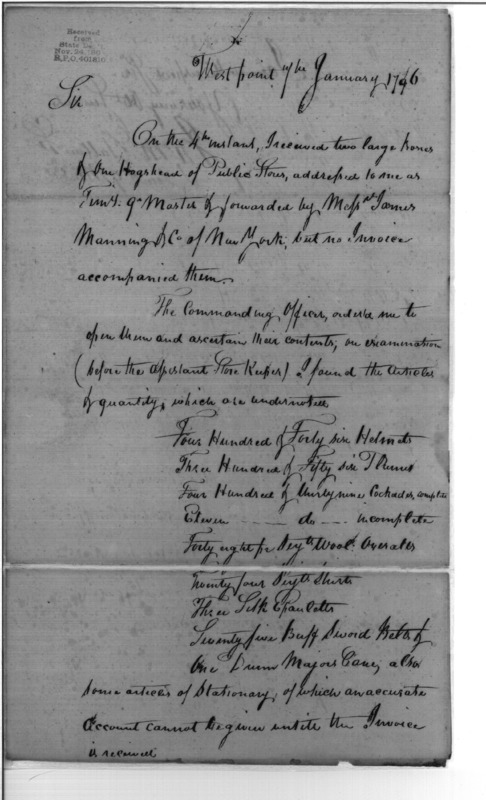 Received
from
State De
Nov. 24, 190
R.P.O. 401810
West point 7th January 1796
Sir
On the 4th instant, I received two large boxes
& One Hogshead of Public Stores, addressed to me as
Qr Master & forwarded by Messrs James
Manning & Co of New York; but no Invoice
accompanied them.
The Commanding Officer, ordered me to
open them and ascertain their contents; on examination
(before the Assistant Store Keeper) I found the Articles
& quantity, which are undernoted
Four Hundred & Forty six Helmets
Three Hundred & Fifty six Plumes
Four Hundred & thirty nine Cockades, complete
Eleven — do — incomplete
Forty eight pr Serjts Wool. Overalls
Twenty four Serjts Shirts
Three Silk Epaulettes
Seventy five Buff Sword Belts &
One Drum Majors Cane; also
some articles of Stationary, of which an accurate
account cannot be given untill the Invoice
is received